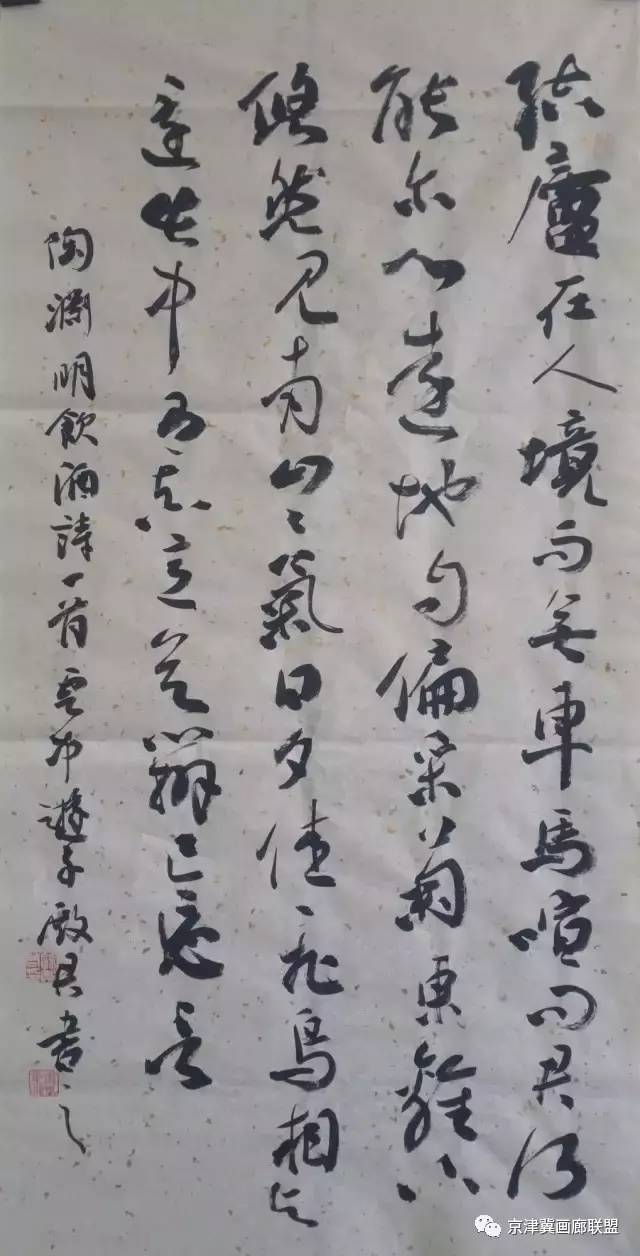 结廬在人境而无車馬喧问君何
能尔心遠地自偏采菊東籬下
悠然见南山〻氣日夕佳飛鳥相与
還此中有真意欲辨已忘言
陶淵明飲酒詩一首雲中遊子殿君書之
京津冀画廊联盟